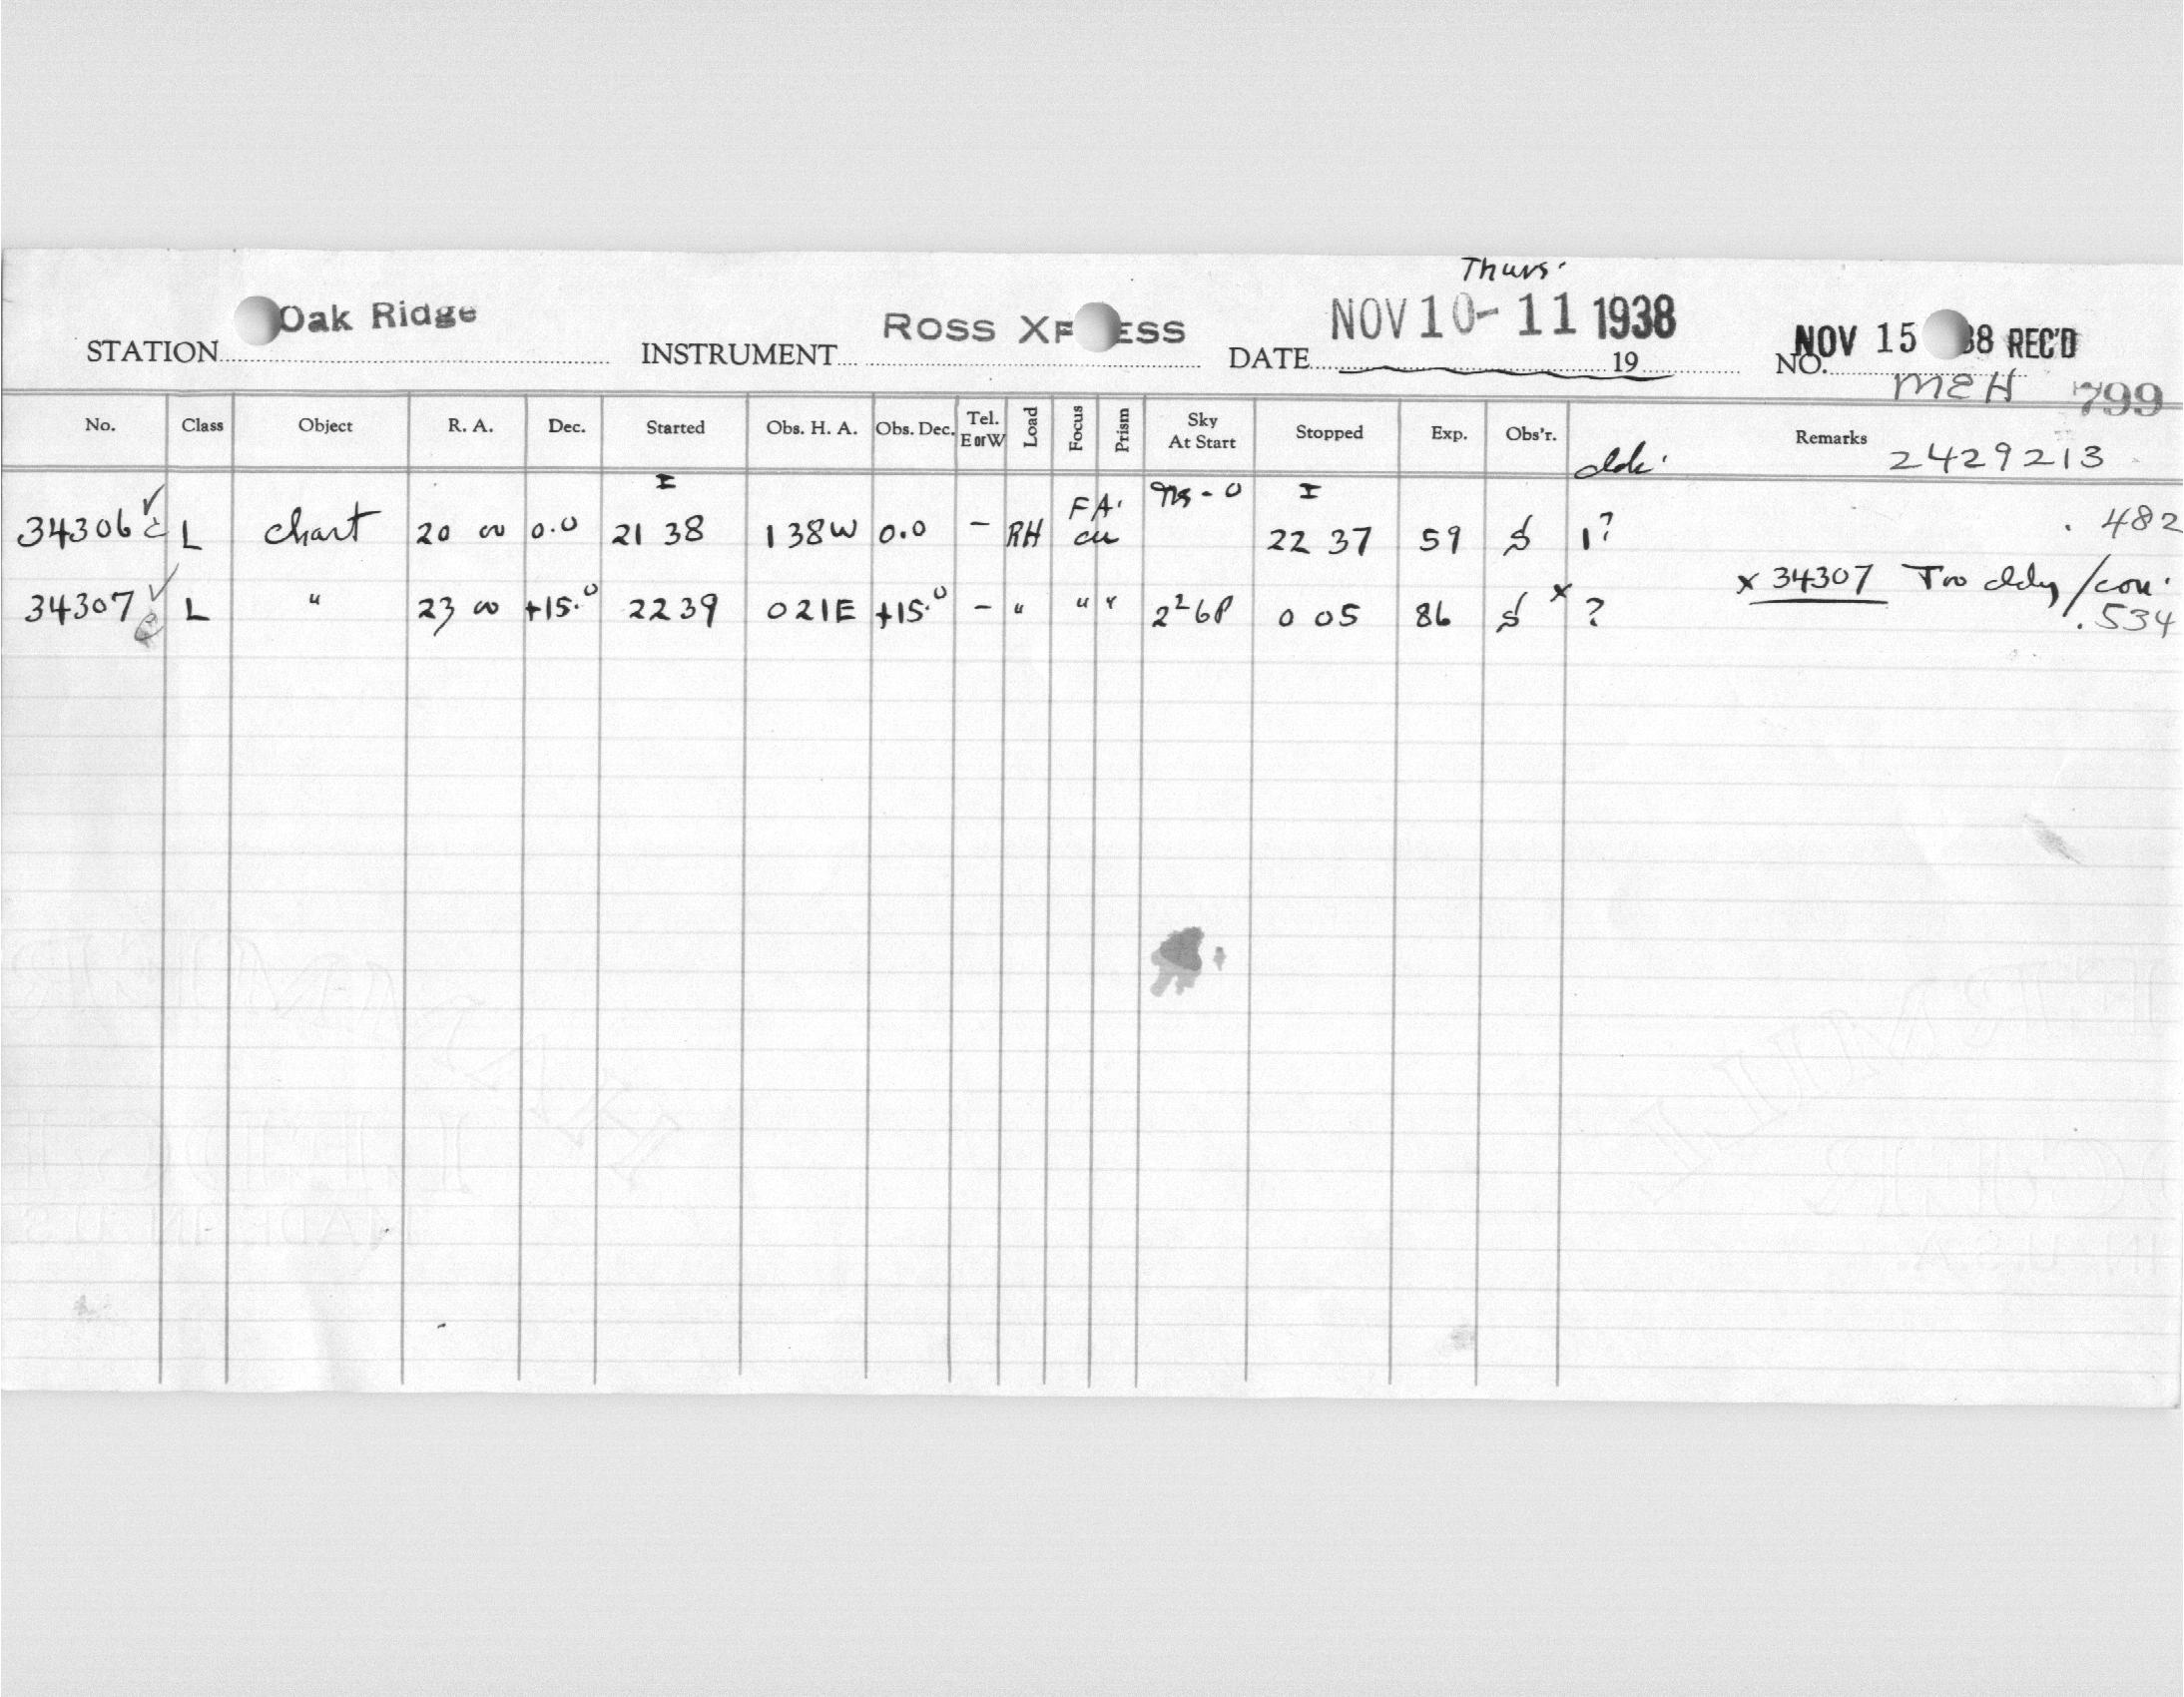 Thurs.
STATION Oak Ridge INSTRUMENT ROSS XP ESS DATE NOV 10-11 1938 19 NO. NOV 15 38 REC'D
MEH 799
No. Class Object R. A. Dec. Started Obs. H. A. Obs. Dec. Tel. E or W Load Focus Prism Sky At Start Stopped Exp. Obs'r. Remarks
2429213
I I
34306 L chart 20 00 0.0 21 38 1 38W 0.0 - RH FA. 22 37 59 1? .482
34307 L " 23 00 +15.0 22 39 0 21E +15.0 - " " " 2 26P 0 05 86 x ? x 34307 Too
.534